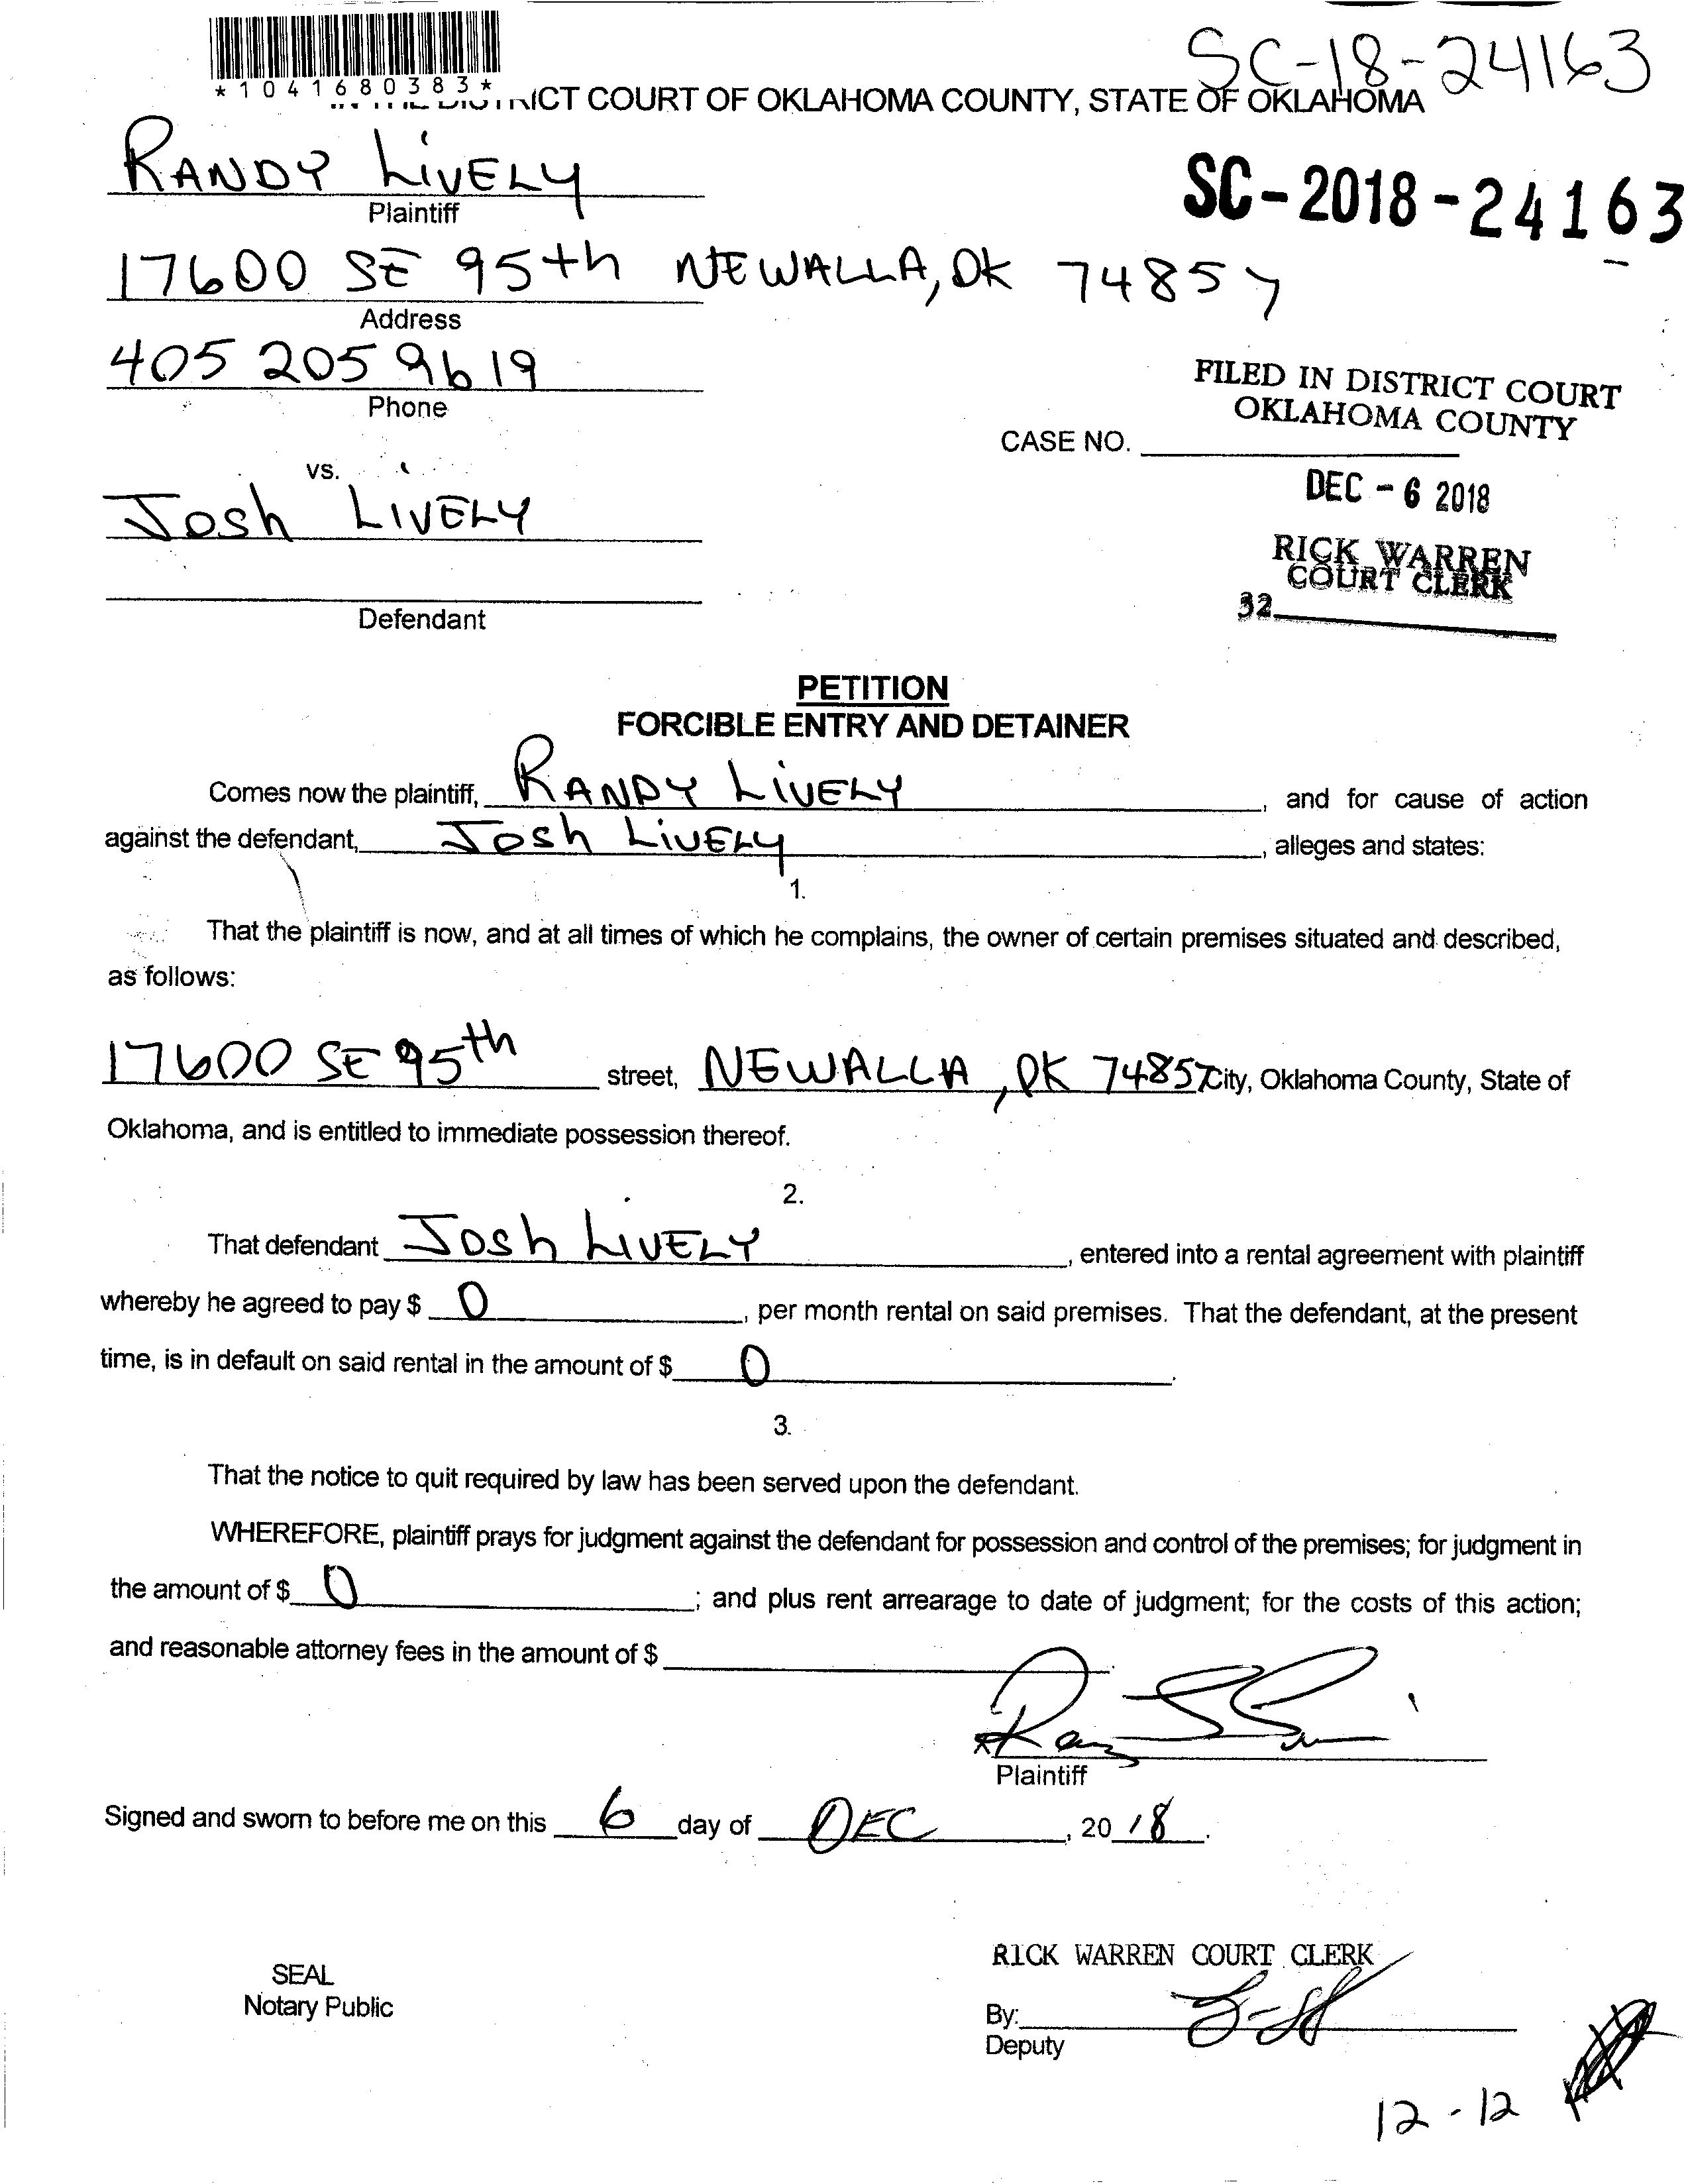 SC-18-24163
*1041680383*
IN THE DISTRICT COURT OF OKLAHOMA COUNTY, STATE OF OKLAHOMA
RANDY LIVELY
Plaintiff
SC-2018-24163
17600 SE 95th NEWALLA, OK 74857
Address
405 205 9619
Phone
FILED IN DISTRICT COURT
OKLAHOMA COUNTY
CASE NO.
vs.
DEC - 6 2018
Josh LIVELY
RICK WARREN
COURT CLERK
32
Defendant
PETITION
FORCIBLE ENTRY AND DETAINER
Comes now the plaintiff, RANDY LIVELY, and for cause of action
against the defendant, Josh LIVELY, alleges and states:
1.
That the plaintiff is now, and at all times of which he complains, the owner of certain premises situated and described,
as follows:
17600 SE 95th street, NEWALLA, OK 74857 City, Oklahoma County, State of
Oklahoma, and is entitled to immediate possession thereof.
2.
That defendant Josh LIVELY, entered into a rental agreement with plaintiff
whereby he agreed to pay $ 0, per month rental on said premises. That the defendant, at the present
time, is in default on said rental in the amount of $ 0.
3.
That the notice to quit required by law has been served upon the defendant.
WHEREFORE, plaintiff prays for judgment against the defendant for possession and control of the premises; for judgment in
the amount of $ 0; and plus rent arrearage to date of judgment; for the costs of this action;
and reasonable attorney fees in the amount of $
Plaintiff
Signed and sworn to before me on this 6 day of DEC, 20 18.
RICK WARREN COURT CLERK
SEAL
Notary Public
By:
Deputy
12-12